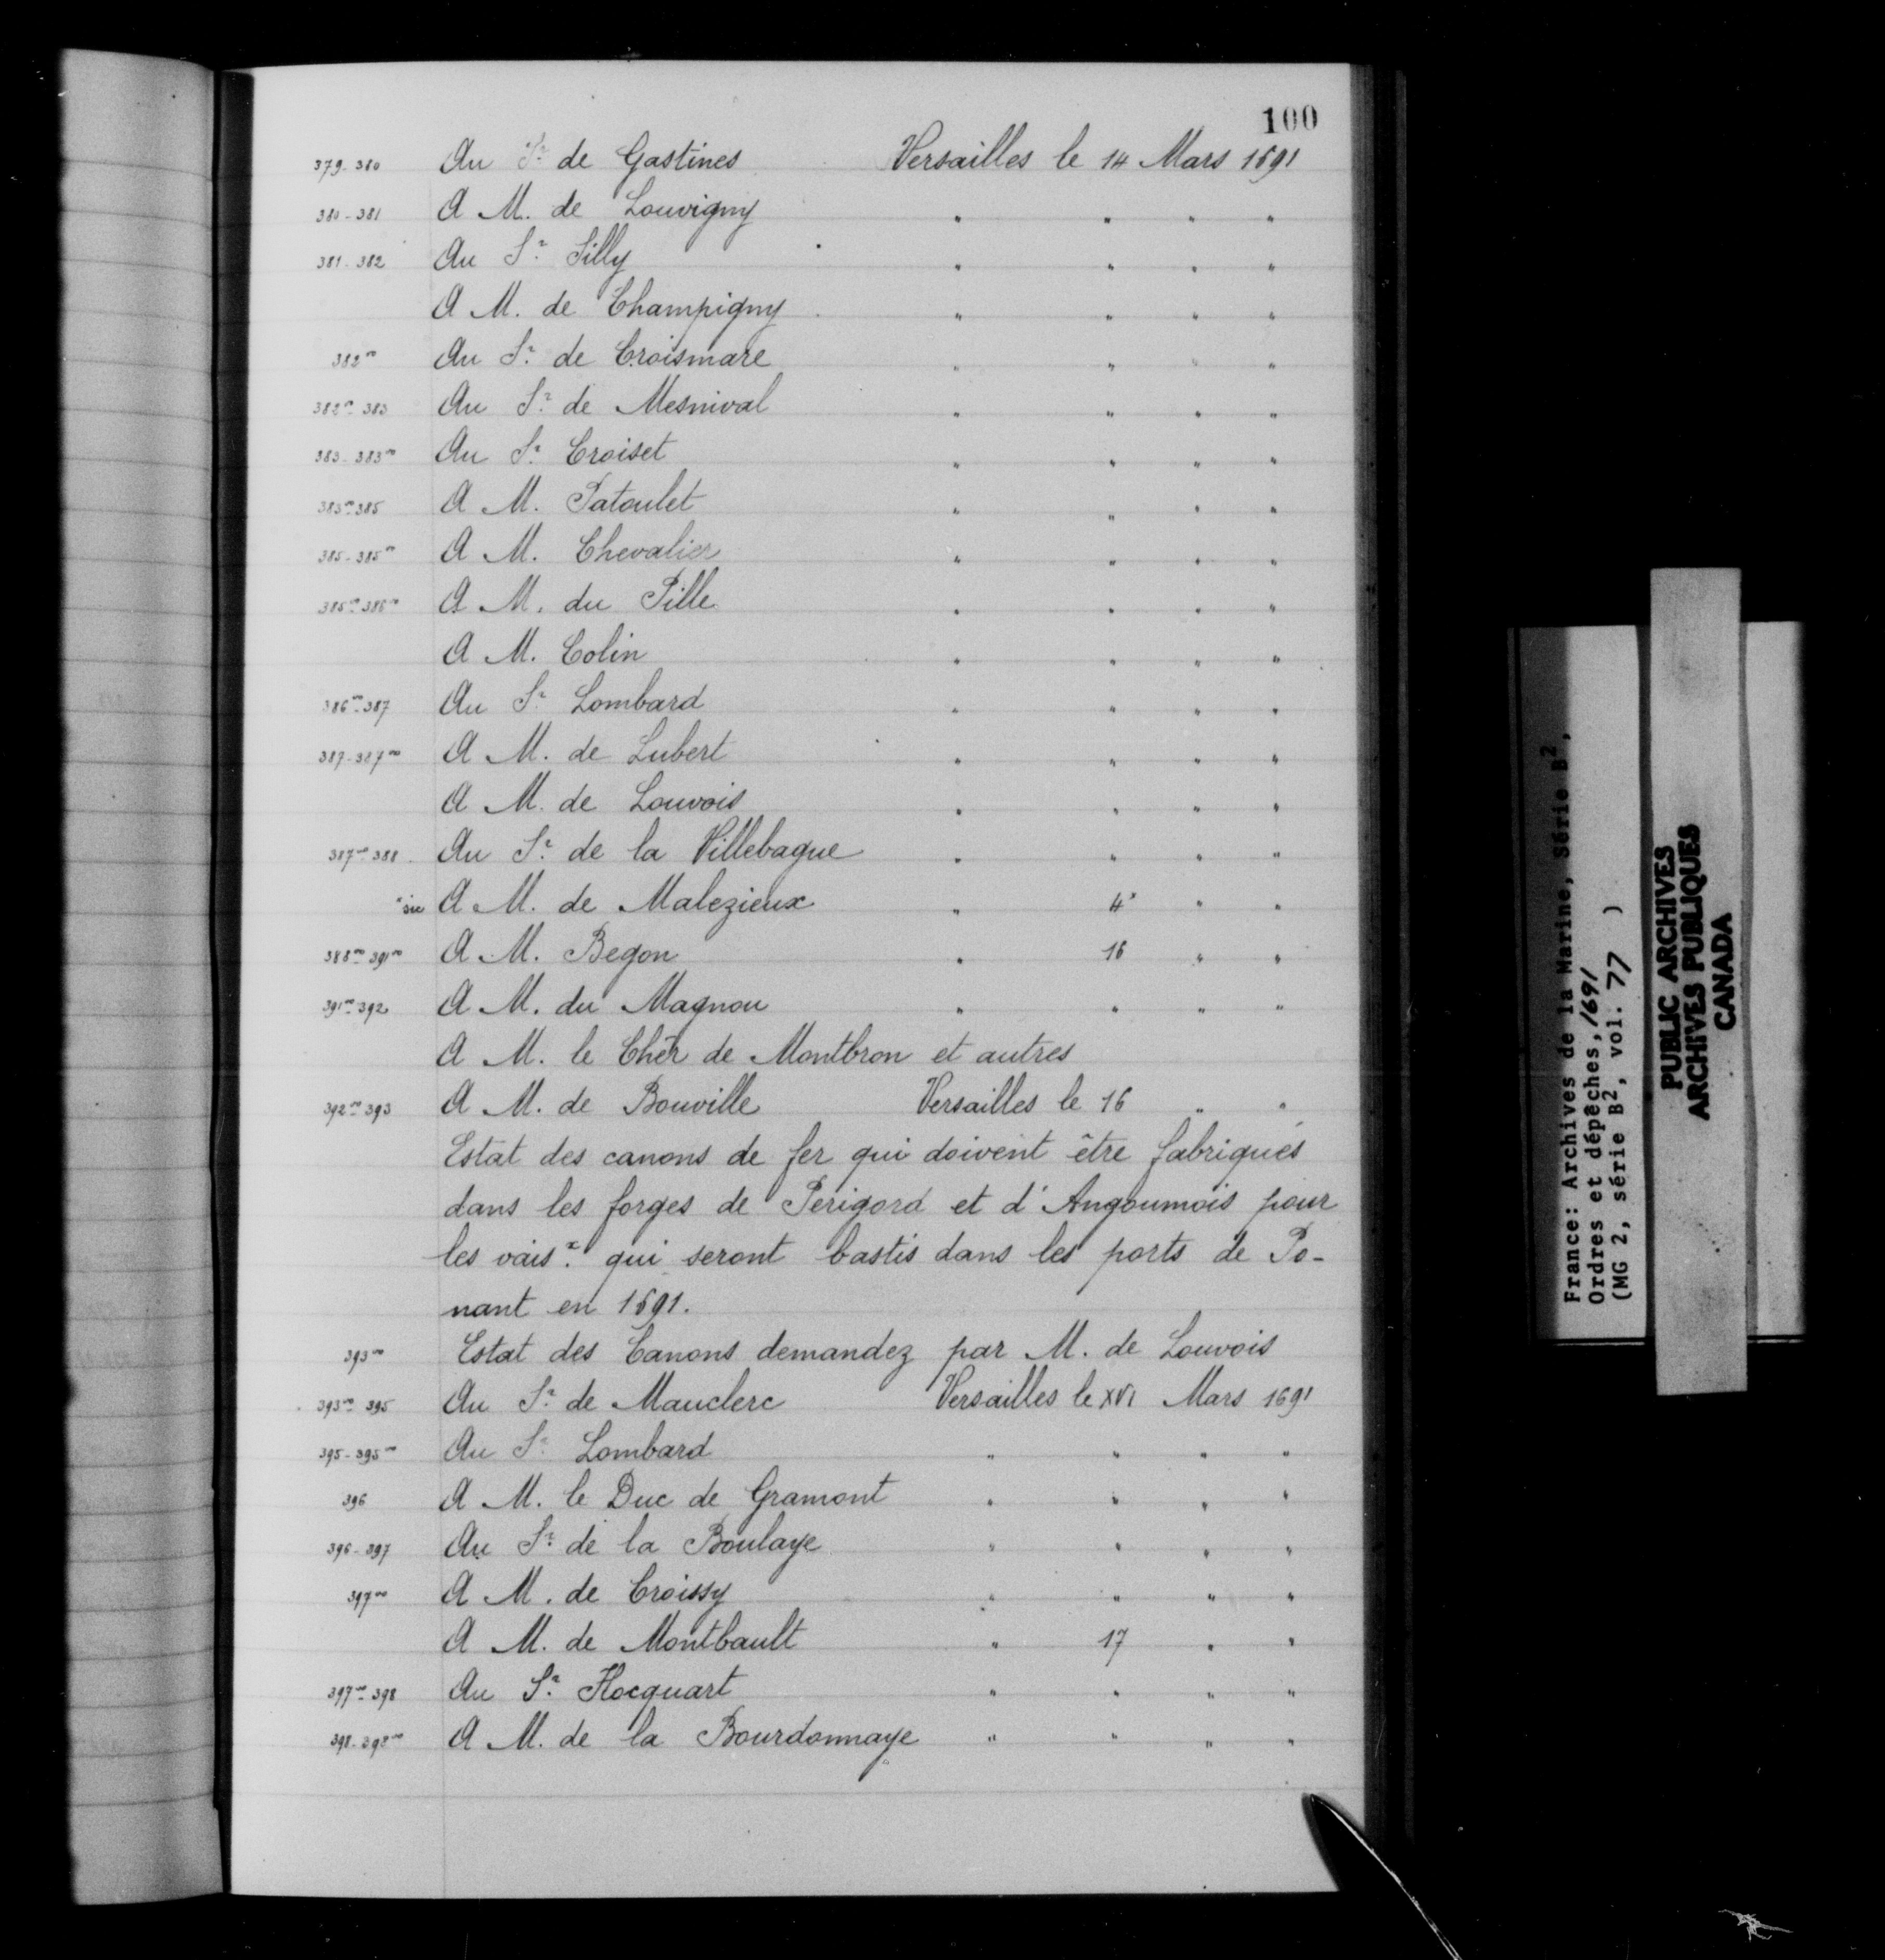 100
379-380 Au Sr de Gastines Versailles le 14 Mars 1691
380-381 A M. de Louvigny " " " "
381-382 Au Sr Silly " " " "
A M. de Champigny " " " "
382vo Au Sr de Croismare " " " "
382vo-383 Au Sr de Mesnival " " " "
383-383vo Au Sr Croiset " " " "
383vo-385 A M. Patoulet " " " "
385-385vo A M. Chevalier " " " "
385vo-386vo A M. du Pille " " " "
A M. Colin " " " "
386vo-387 Au Sr Lombard " " " "
387-387vo A M. de Lubert " " " "
A M. de Louvois " " " "
387vo-388 Au Sr de la Villebague " " " "
*sic A M. de Malezieux " 4* " "
388vo-391vo A M. Begon " 16 " "
391vo-392 A M. du Magnou " " " "
A M. le Cher de Montbron et autres
392vo-393 A M. de Bouville Versailles le 16 " "
Estat des canons de fer qui doivent être fabriqués
dans les forges de Perigord et d'Angoumois pour
les vaisx. qui seront bastis dans les ports de Po-
nant en 1691.
393vo Estat des Canons demandez par M. de Louvois
393vo-395 Au Sr de Mauclerc Versailles le XVI Mars 1691
395-395vo Au Sr Lombard " " " "
396 A M. le Duc de Gramont " " " "
396-397 Au Sr de la Boulaye " " " "
397vo A M. de Croissy " " " "
A M. de Montbault " 17 " "
397vo-398 Au Sr Hocquart " " " "
398-398vo A M. de la Bourdonnaye " " " "
France: Archives de la Marine, Série B2,
Ordres et dépêches, 1691
(MG 2, série B2, vol. 77 )
PUBLIC ARCHIVES
ARCHIVES PUBLIQUES
CANADA